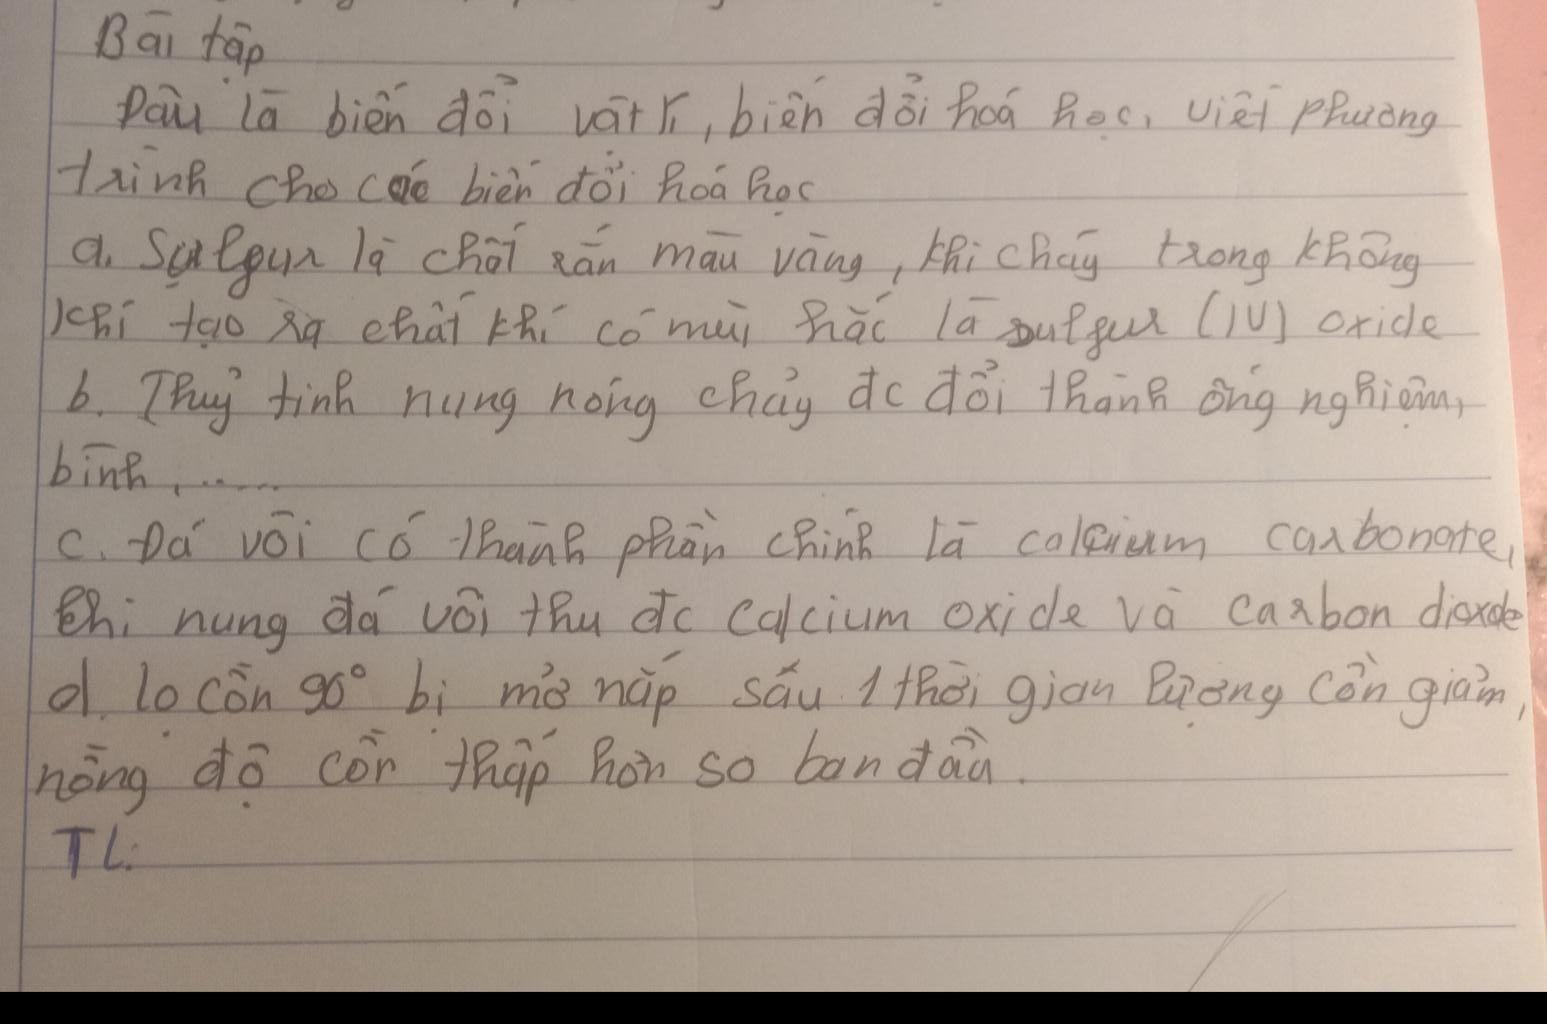 Bài tập
Đâu là biến đổi vật lí, biến đổi hoá học, viết phương
trình cho các biến đổi hoá học
a. Sulfur là chất rắn màu vàng, khi cháy trong không
khí tạo ra chất khí có mùi hắc là sulfur (IV) oxide
b. Thuỷ tinh nung nóng chảy đc đổi thành ống nghiệm,
bình, .....
c. Đá vôi có thành phần chính là calcium carbonate,
khi nung đá vôi thu đc calcium oxide và carbon dioxde
d. lọ cồn 90° bị mở nắp sáu 1 thời gian lượng cồn giảm,
nồng độ cồn thấp hơn so ban đầu.
TL: